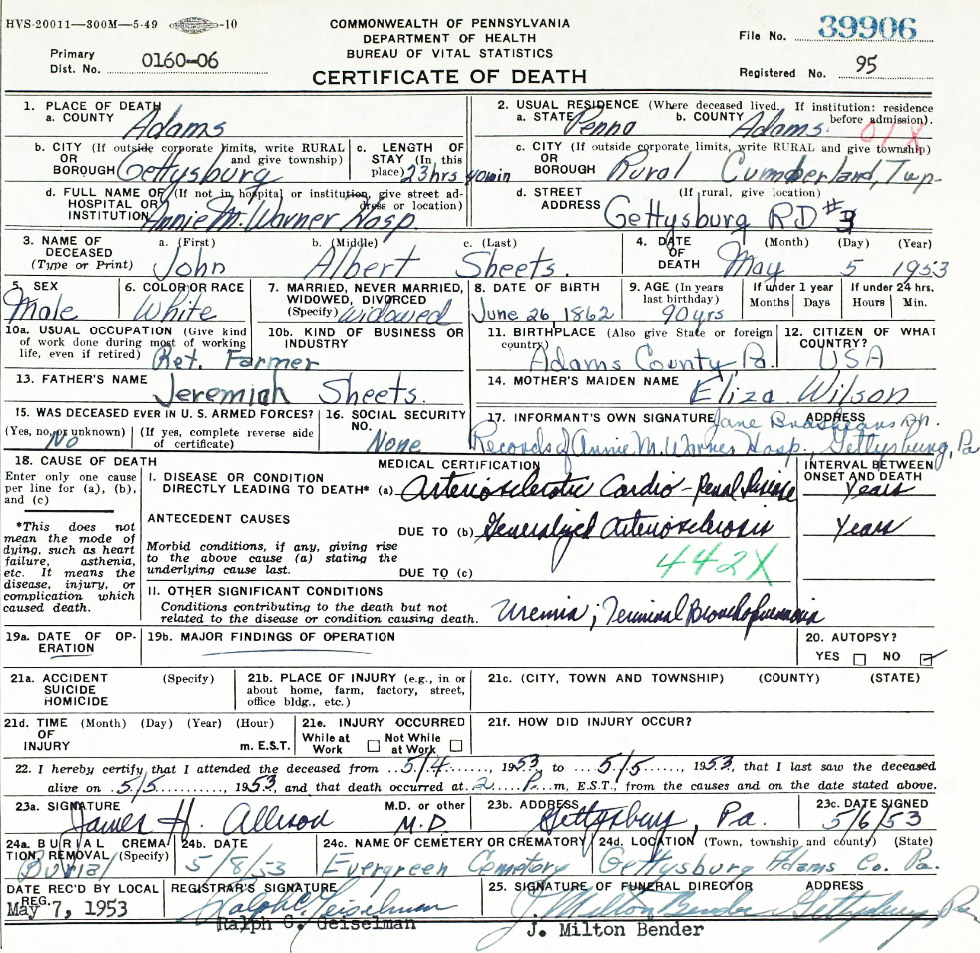 HVS-20011—300M—5-49 -10
COMMONWEALTH OF PENNSYLVANIA
DEPARTMENT OF HEALTH
BUREAU OF VITAL STATISTICS
CERTIFICATE OF DEATH
File No. 39906
Primary Dist. No. 0160-06
Registered No. 95
1. PLACE OF DEATH
a. COUNTY Adams
2. USUAL RESIDENCE (Where deceased lived. If institution: residence before admission).
a. STATE Penna b. COUNTY Adams.
01X
b. CITY (If outside corporate limits, write RURAL and give township) OR BOROUGH Gettysburg
c. LENGTH OF STAY (In this place) 23hrs 40min
c. CITY (If outside corporate limits, write RURAL and give township) OR BOROUGH Rural Cumberland, Twp.
d. FULL NAME OF (If not in hospital or institution, give street address or location) HOSPITAL OR INSTITUTION Annie M. Warner Hosp.
d. STREET ADDRESS (If rural, give location) Gettysburg RD #3
3. NAME OF DECEASED (Type or Print)
a. (First) John b. (Middle) Albert c. (Last) Sheets.
4. DATE OF DEATH (Month) (Day) (Year) May 5 1953
5. SEX Male
6. COLOR OR RACE White
7. MARRIED, NEVER MARRIED, WIDOWED, DIVORCED (Specify) Widowed
8. DATE OF BIRTH June 26, 1862
9. AGE (In years last birthday) 90 yrs
If under 1 year Months Days
If under 24 hrs. Hours Min.
10a. USUAL OCCUPATION (Give kind of work done during most of working life, even if retired) Ret. Farmer
10b. KIND OF BUSINESS OR INDUSTRY
11. BIRTHPLACE (Also give State or foreign country) Adams County Pa.
12. CITIZEN OF WHAT COUNTRY? USA
13. FATHER'S NAME Jeremiah Sheets.
14. MOTHER'S MAIDEN NAME Eliza Wilson
15. WAS DECEASED EVER IN U. S. ARMED FORCES?
(Yes, no, or unknown) No (If yes, complete reverse side of certificate)
16. SOCIAL SECURITY NO. None
17. INFORMANT'S OWN SIGNATURE ADDRESS
Jane
Records of Annie M. Warner Hosp., Gettysburg, Pa
18. CAUSE OF DEATH
Enter only one cause per line for (a), (b), and (c)
*This does not mean the mode of dying, such as heart failure, asthenia, etc. It means the disease, injury, or complication which caused death.
MEDICAL CERTIFICATION
INTERVAL BETWEEN ONSET AND DEATH
I. DISEASE OR CONDITION DIRECTLY LEADING TO DEATH* (a) Arteriosclerotic Cardio-Renal Disease Years
ANTECEDENT CAUSES
DUE TO (b) Generalized Arteriosclerosis Years
Morbid conditions, if any, giving rise to the above cause (a) stating the underlying cause last.
DUE TO (c)
442X
II. OTHER SIGNIFICANT CONDITIONS
Conditions contributing to the death but not related to the disease or condition causing death. Uremia; Terminal Bronchopneumonia
19a. DATE OF OPERATION
19b. MAJOR FINDINGS OF OPERATION
20. AUTOPSY?
YES NO
21a. ACCIDENT SUICIDE HOMICIDE (Specify)
21b. PLACE OF INJURY (e.g., in or about home, farm, factory, street, office bldg., etc.)
21c. (CITY, TOWN AND TOWNSHIP) (COUNTY) (STATE)
21d. TIME OF INJURY (Month) (Day) (Year) (Hour) m. E.S.T.
21e. INJURY OCCURRED
While at Work Not While at Work
21f. HOW DID INJURY OCCUR?
22. I hereby certify that I attended the deceased from 5/4, 1953 to 5/5, 1953, that I last saw the deceased
alive on 5/5, 1953, and that death occurred at 2 P.m, E.S.T., from the causes and on the date stated above.
23a. SIGNATURE James H. Allison
M.D. or other M.D.
23b. ADDRESS Gettysburg, Pa.
23c. DATE SIGNED 5/6/53
24a. BURIAL, CREMATION, REMOVAL (Specify) Burial
24b. DATE 5/8/53
24c. NAME OF CEMETERY OR CREMATORY Evergreen Cemetery
24d. LOCATION (Town, township and county) (State) Gettysburg Adams Co. Pa.
DATE REC'D BY LOCAL REG. May 7, 1953
REGISTRAR'S SIGNATURE Ralph C. Geiselman
Ralph C. Geiselman
25. SIGNATURE OF FUNERAL DIRECTOR ADDRESS
J. Milton Bender Gettysburg Pa.
J. Milton Bender